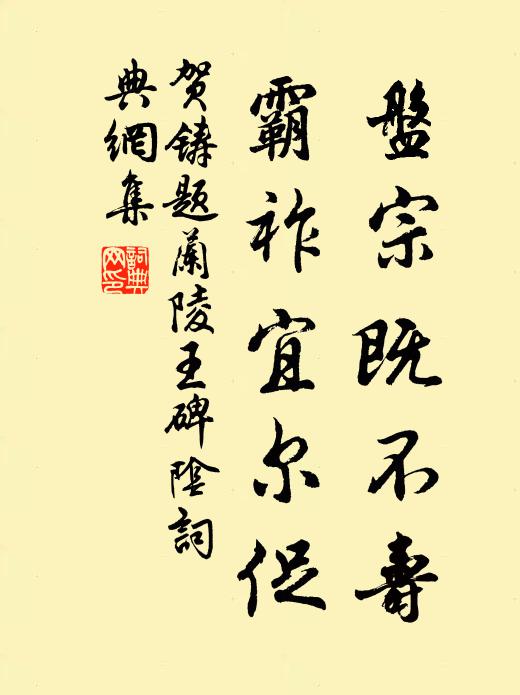 盤宗既不壽
霸祚宜尔促
贺鑄题蘭陵王碑陰詞
典網集
詞典
网印